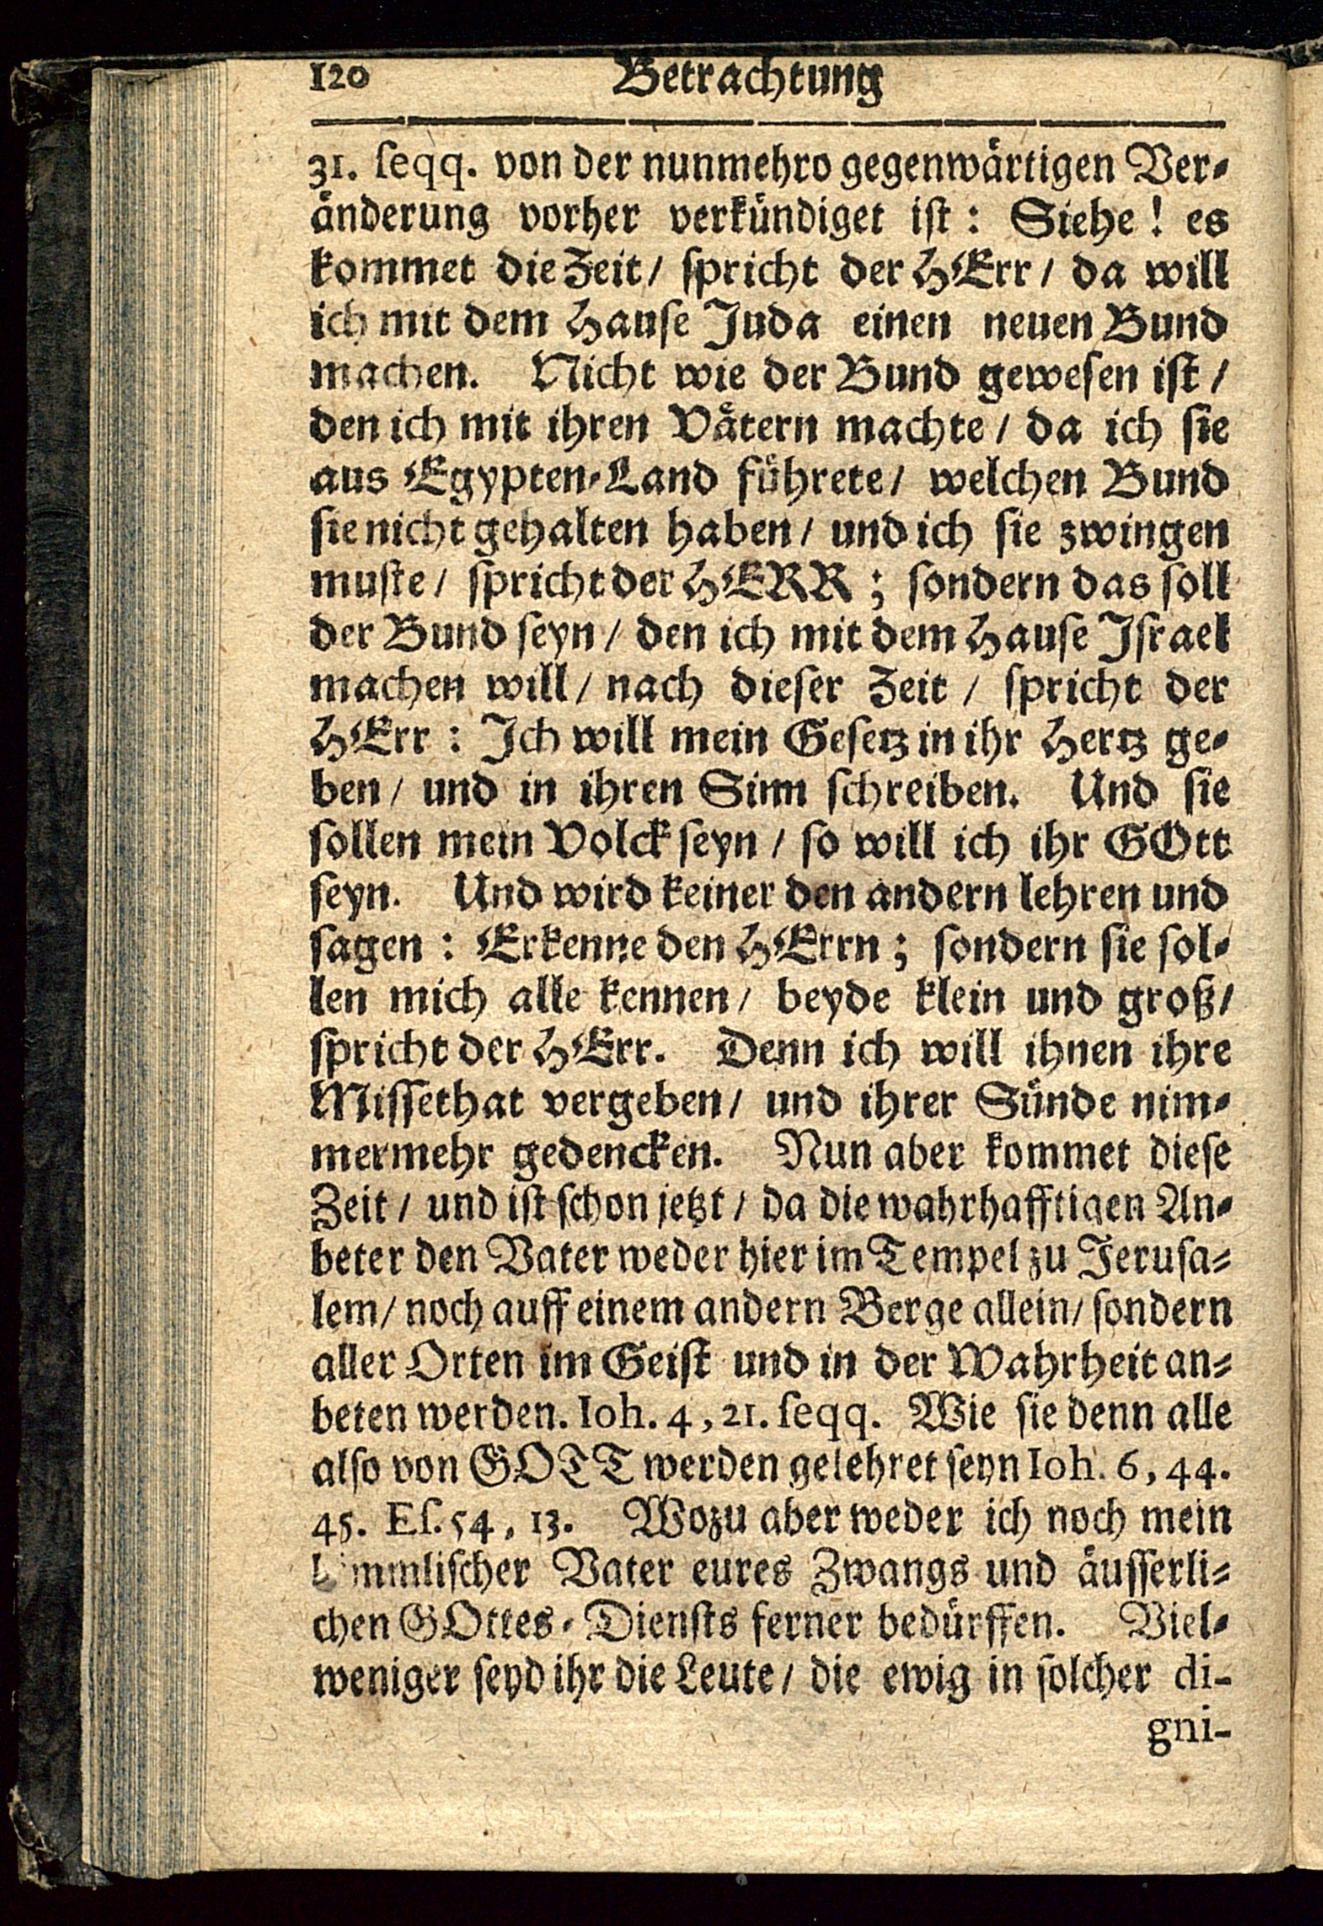 120 Betrachtung
31. ſeqq. von der nunmehro gegenwärtigen Ver-
änderung vorher verkündiget iſt: Siehe! es
kommet die Zeit/ ſpricht der HErr/ da will
ich mit dem Hauſe Juda einen neuen Bund
machen. Nicht wie der Bund geweſen iſt/
den ich mit ihren Vätern machte/ da ich ſie
aus Egypten-Land führete/ welchen Bund
ſie nicht gehalten haben/ und ich ſie zwingen
muſte/ ſpricht der HERR; ſondern das ſoll
der Bund ſeyn/ den ich mit dem Hauſe Iſrael
machen will/ nach dieſer Zeit/ ſpricht der
HErr: Ich will mein Geſetz in ihr Hertz ge-
ben/ und in ihren Sinn ſchreiben. Und ſie
ſollen mein Volck ſeyn/ ſo will ich ihr GOtt
ſeyn. Und wird keiner den andern lehren und
ſagen: Erkenne den HErrn; ſondern ſie ſol-
len mich alle kennen/ beyde klein und groß/
ſpricht der HErr. Denn ich will ihnen ihre
Miſſethat vergeben/ und ihrer Sünde nim-
mermehr gedencken. Nun aber kommet dieſe
Zeit/ und iſt ſchon jetzt/ da die wahrhafftigen An-
beter den Vater weder hier im Tempel zu Jeruſa-
lem/ noch auff einem andern Berge allein/ ſondern
aller Orten im Geiſt und in der Wahrheit an-
beten werden. Ioh. 4, 21. ſeqq. Wie ſie denn alle
alſo von GOTT werden gelehret ſeyn Ioh. 6, 44.
45. Eſ. 54, 13. Wozu aber weder ich noch mein
himmliſcher Vater eures Zwangs und äuſſerli-
chen GOttes-Dienſts ferner bedürffen. Viel-
weniger ſeyd ihr die Leute/ die ewig in ſolcher di-
gni-